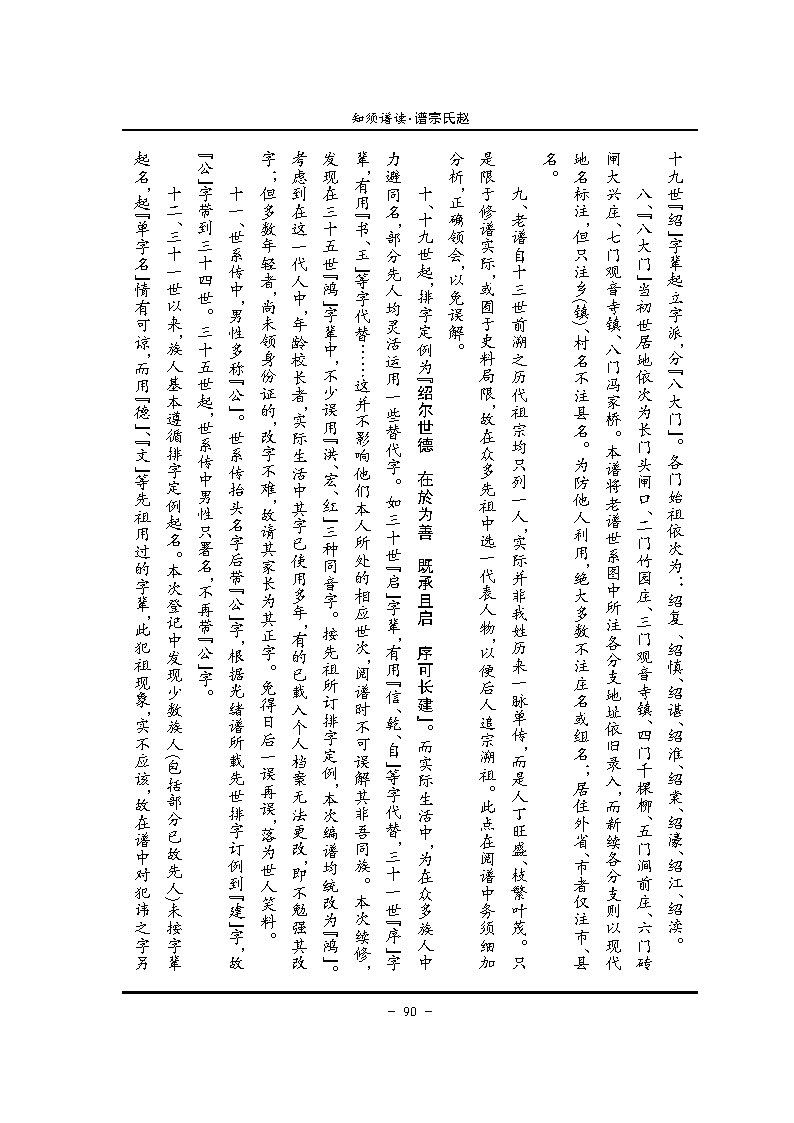 知须谱读·谱宗氏赵
十九世『绍』字辈起立字派，分『八大门』。各门始祖依次为：绍复、绍慎、绍谌、绍淮、绍棠、绍濠、绍江、绍渎。
八、『八大门』当初世居地依次为长门头闸口、二门竹园庄、三门观音寺镇、四门千棵柳、五门涧前庄、六门砖
闸大兴庄、七门观音寺镇、八门冯家桥。本谱将老谱世系图中所注各分支地址依旧录入，而新续各分支则以现代
地名标注，但只注乡(镇)、村名不注县名。为防他人利用，绝大多数不注庄名或组名；居住外省、市者仅注市、县
名。
九、老谱自十三世前溯之历代祖宗均只列一人，实际并非我姓历来一脉单传，而是人丁旺盛、枝繁叶茂。只
是限于修谱实际，或囿于史料局限，故在众多先祖中选一代表人物，以便后人追宗溯祖。此点在阅谱中务须细加
分析，正确领会，以免误解。
十、十九世起，排字定例为『绍尔世德 在於为善 既承且启 序可长建』。而实际生活中，为在众多族人中
力避同名，部分先人均灵活运用一些替代字。如三十世『启』字辈，有用『信、乾、自』等字代替，三十一世『序』字
辈，有用『书、玉』等字代替……这并不影响他们本人所处的相应世次，阅谱时不可误解其非吾同族。本次续修，
发现在三十五世『鸿』字辈中，不少误用『洪、宏、红』三种同音字。按先祖所订排字定例，本次编谱均统改为『鸿』。
考虑到在这一代人中，年龄校长者，实际生活中其字已使用多年，有的已载入个人档案无法更改，即不勉强其改
字；但多数年轻者，尚未领身份证的，改字不难，故请其家长为其正字。免得日后一误再误，落为世人笑料。
十一、世系传中，男性多称『公』。世系传抬头名字后带『公』字，根据光绪谱所载先世排字订例到『建』字，故
『公』字带到三十四世。三十五世起，世系传中男性只署名，不再带『公』字。
十二、三十一世以来，族人基本遵循排字定例起名。本次登记中发现少数族人(包括部分已故先人)未按字辈
起名，起『单字名』情有可谅，而用『德』、『文』等先祖用过的字辈，此犯祖现象，实不应该，故在谱中对犯讳之字另
- 90 -